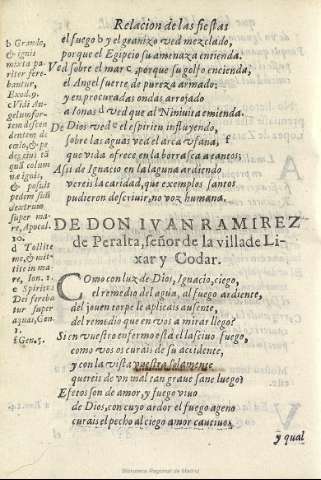 Relacion de las fiestas
el fuego b y el granizo ved mezclado,
porque el Egipcio su amenaza entienda.
Ved sobre el mar c, porque su golfo encienda,
el Angel fuerte de pureza armado:
y en procuradas ondas arrojado
a Ionas d ved que al Niniuita emienda.
De Dios ved e el espiritu influyendo,
sobre las aguas ved el arca vfana, f
que vida ofrece en la borrasca a tantos;
Assi de Ignacio en la laguna ardiendo
vereis la caridad, que exemplos santos
pudieron descriuir, no voz humana.
b Grando,
& ignis
mixta pa
riter fere-
bantur,
Exod. 9.
c Vidi An-
gelum for-
tem descen
dentem de
cœlo, & pe
des eius tã
quã colum
na ignis,
& posuit
pedem suũ
dextrum
super ma-
re, Apocal.
10.
d Tollite
me, & mit-
tite in ma-
re, Ion. 1.
e Spiritus
Dei fereba
tur super
aquas, Gen.
1.
f Gen. 5.
DE DON IVAN RAMIREZ
de Peralta, señor de la villa de Li-
xar y Codar.
Como con luz de Dios, Ignacio, ciego,
el remedio del agua, al fuego ardiente,
del jouen torpe le aplicais ausente,
del remedio que en vos a mirar llego?
Si en vuestro enfermo está el lasciuo fuego,
como vos os curais de su accidente,
y con la vista vuestra solamente
quereis de vn mal tan graue sane luego?
Efetos son de amor, y fuego viuo
de Dios, con cuyo ardor el fuego ageno
curais el pecho al ciego amor cautiuo,
y qual
Biblioteca Regional de Madrid